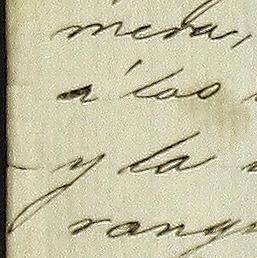 mera,
á los
y la
rang